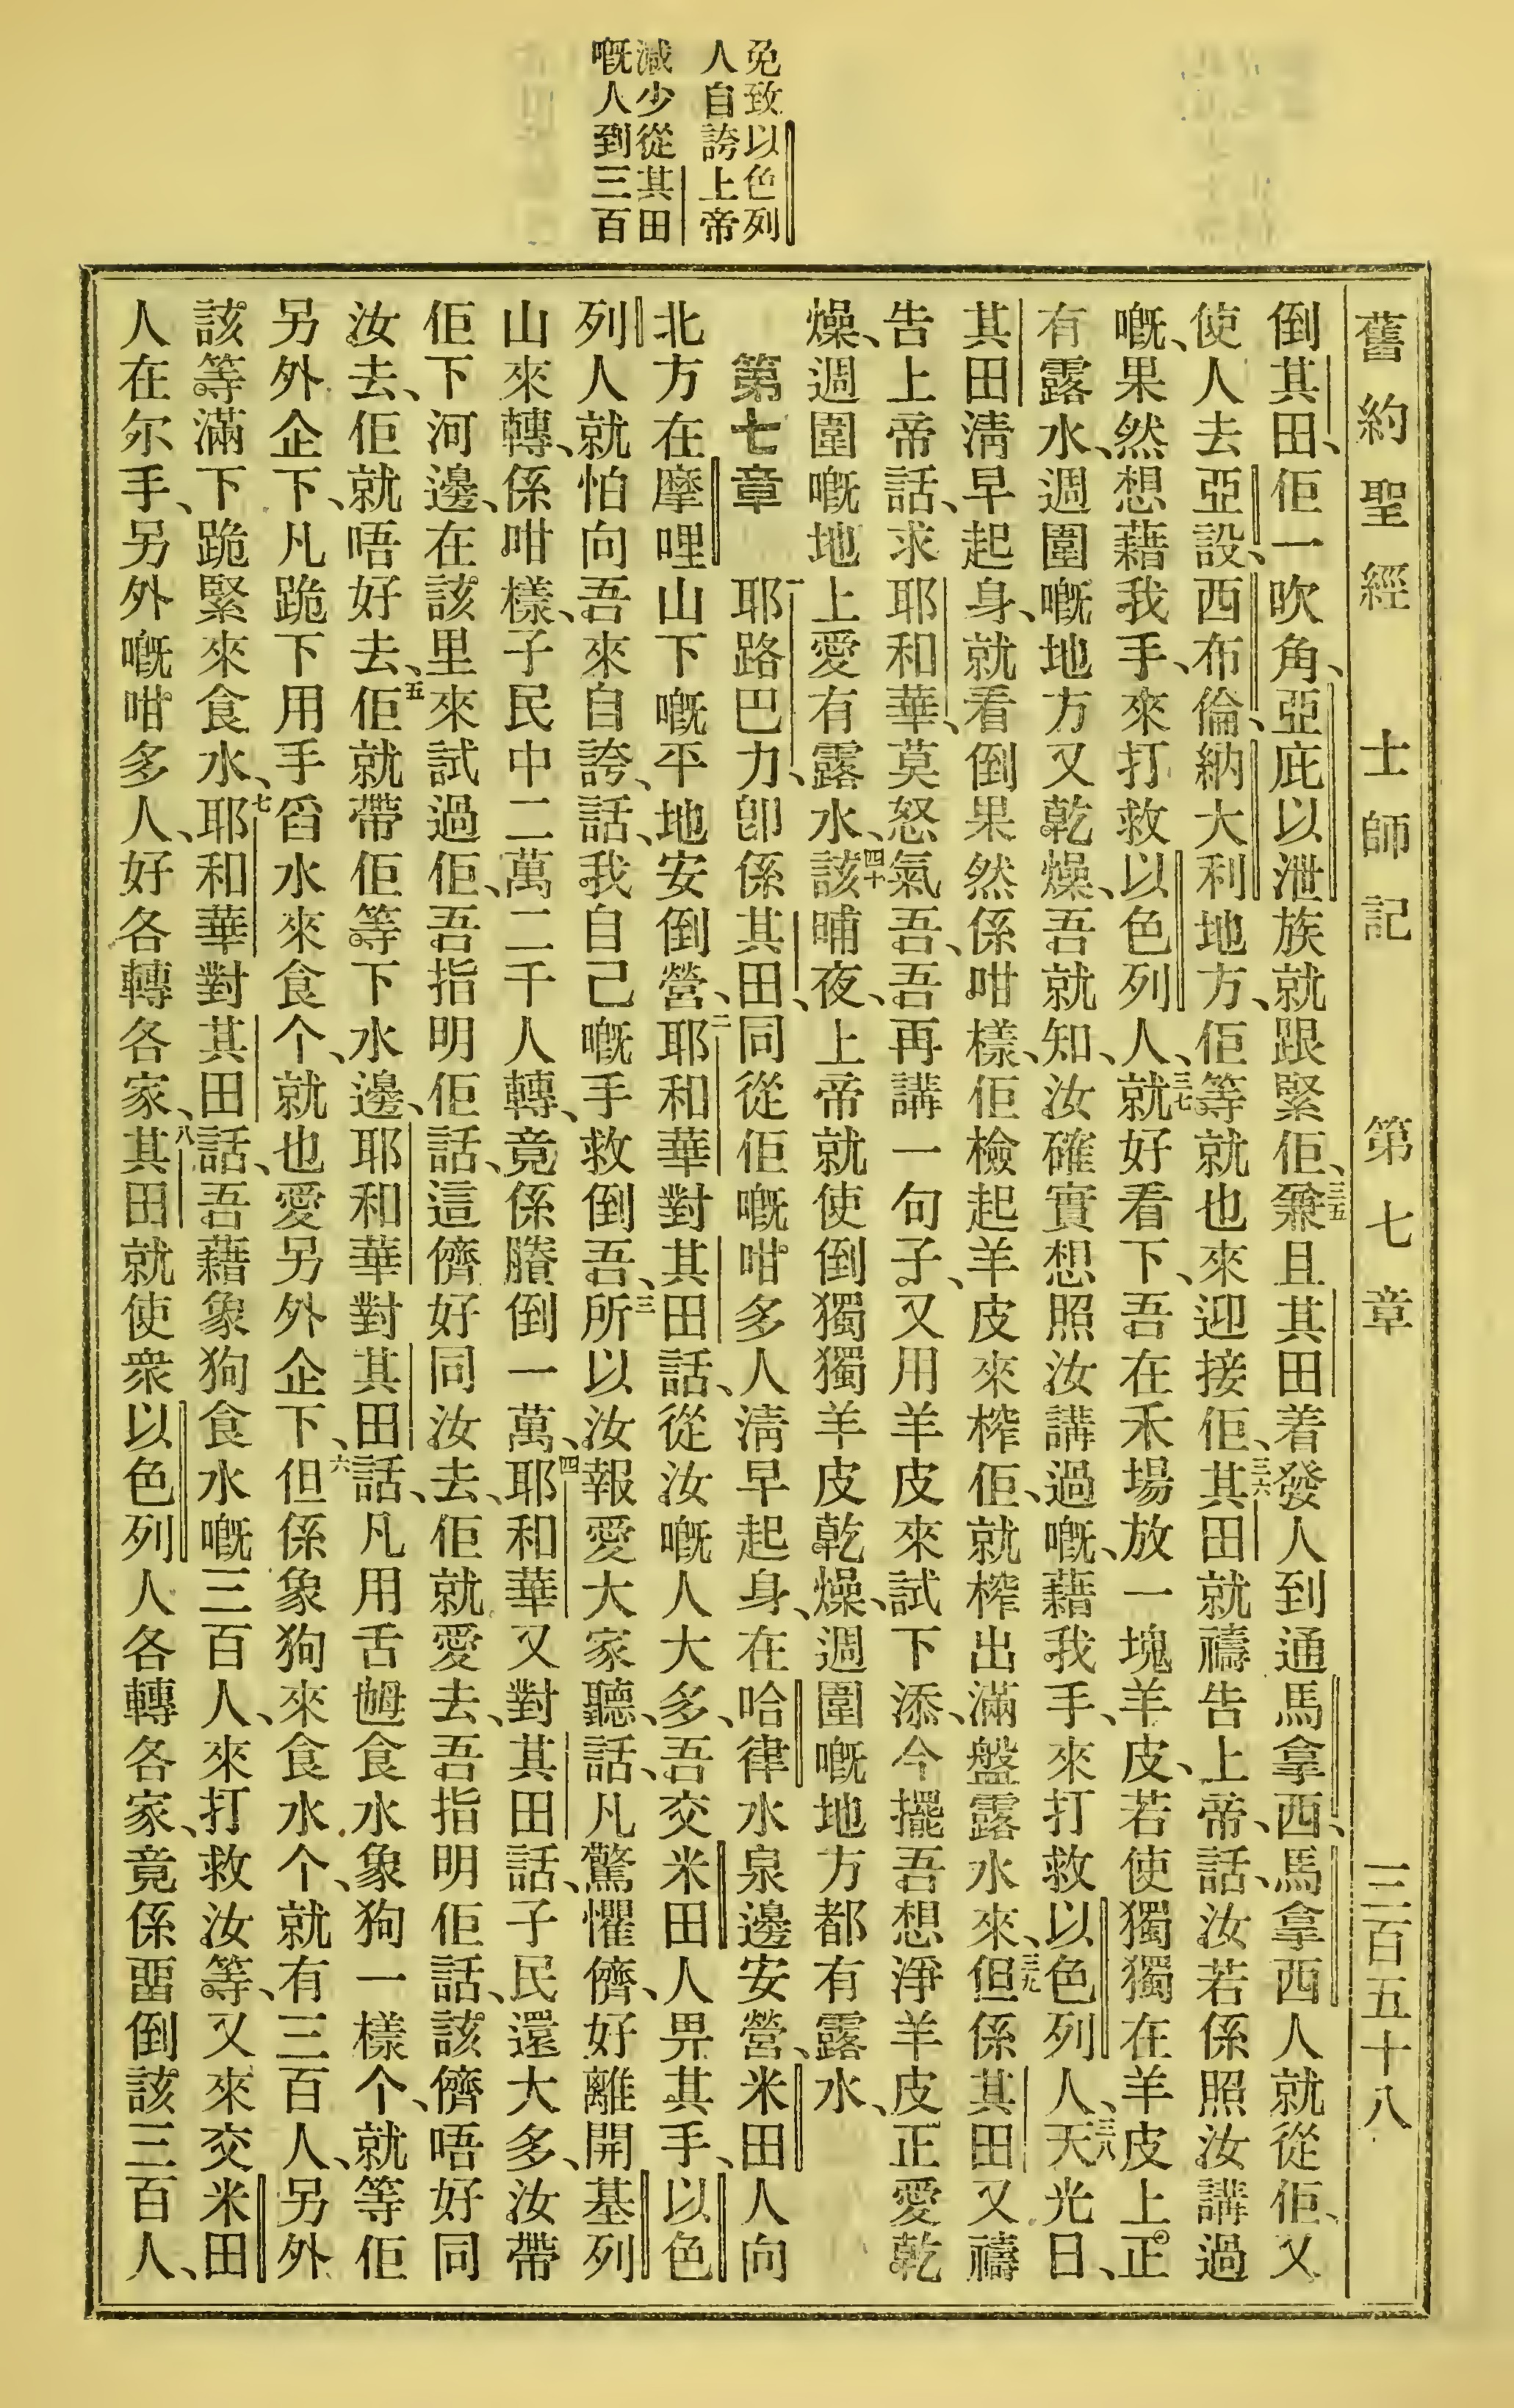 免致以色列
人自誇上帝
減少從其田
嘅人到三百
舊約聖經 士師記 第七章 三百五十八
倒其田、佢一吹角、亞庇以泄族就跟緊佢、三五兼且其田着發人到通馬拿西、馬拿西人就從佢、又
使人去亞設、西布倫、納大利地方、佢等就也來迎接佢、三六其田就禱告上帝、話、汝若係照汝講過
嘅、果然想藉我手、來打救以色列人、三七就好看下、吾在禾場放一塊羊皮、若使獨獨在羊皮上正
有露水、週圍嘅地方又乾燥、吾就知、汝確實想照汝講過嘅、藉我手、來打救以色列人、三八天光日、
其田淸早起身、就看倒果然係咁樣、佢檢起羊皮來榨佢、就榨出滿盤露水來、三九但係其田又禱
告上帝話、求耶和華、莫怒氣吾、吾再講一句子、又用羊皮來試下添、今擺吾想淨羊皮正愛乾
燥、週圍嘅地上愛有露水、四十該晡夜、上帝就使倒獨獨羊皮乾燥、週圍嘅地方都有露水、
第七章 一耶路巴力、卽係其田、同從佢嘅咁多人淸早起身、在哈律水泉邊安營、米田人向
北方在摩哩山下嘅平地安倒營、二耶和華對其田話、從汝嘅人大多、吾交米田人畀其手、以色
列人就怕向吾來自誇、話、我自己嘅手救倒吾、三所以汝報愛大家聽、話、凡驚懼儕、好離開基列
山來轉、係咁樣、子民中二萬二千人轉、竟係賸倒一萬、四耶和華又對其田話、子民還大多、汝帶
佢下河邊、在該里來試過佢、吾指明佢話、這儕好同汝去、佢就愛去、吾指明佢話、該儕唔好同
汝去、佢就唔好去、五佢就帶佢等下水邊、耶和華對其田話、凡用舌𦧷食水象狗一樣个、就等佢
另外企下、凡跪下用手舀水來食个、就也愛另外企下、六但係象狗來食水个、就有三百人、另外
該等滿下跪緊來食水、七耶和華對其田話、吾藉象狗食水嘅三百人、來打救汝等、又來交米田
人在尔手、另外嘅咁多人、好各轉各家、八其田就使衆以色列人各轉各家、竟係畱倒該三百人、